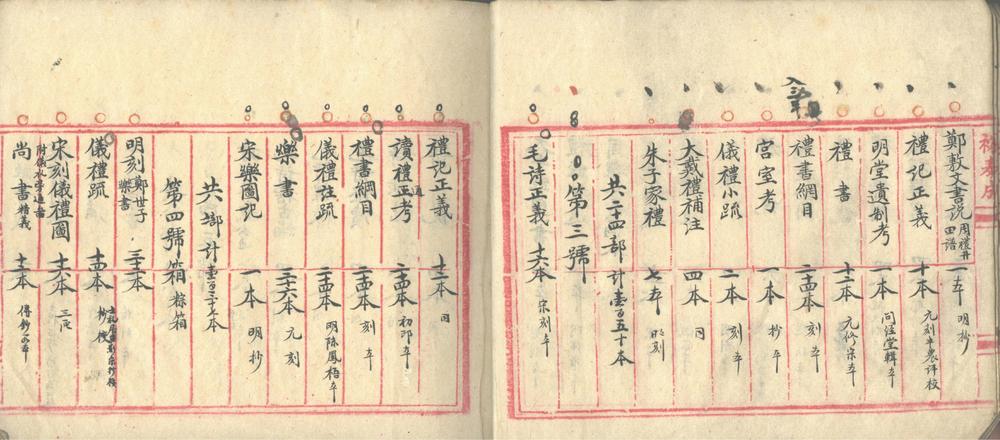 鄭敷文書說 周禮井田譜 一本 明抄
禮記正義 十本 元刻本 農評校
明堂遺制考 一本 問經堂輯本
禮書 十二本 元修宋本
禮書綱目 二十四本 刻本
宮室考 一本 抄本
儀禮小疏 二本 刻本
大戴禮補注 四本 同
朱子家禮 七本 明刻
共二十四部 計壹百五十本
第三號
毛詩正義 十六本 宋刻本
禮記正義 十二本 同
讀禮通考 二十四本 初印本
禮書綱目 二十四本 刻本
儀禮註疏 二十四本 明陳鳳梧本
樂書 三十六本 元刻
宋樂圖記 一本 明抄
共 部 計壹百三十七本
第四號箱 粽箱
明刻鄭世子樂書 二十本
儀禮疏 十四本 抄校
宋刻儀禮圖 附儀禮旁通圖 十六本 三函
尚書精義 十二本 傳鈔本